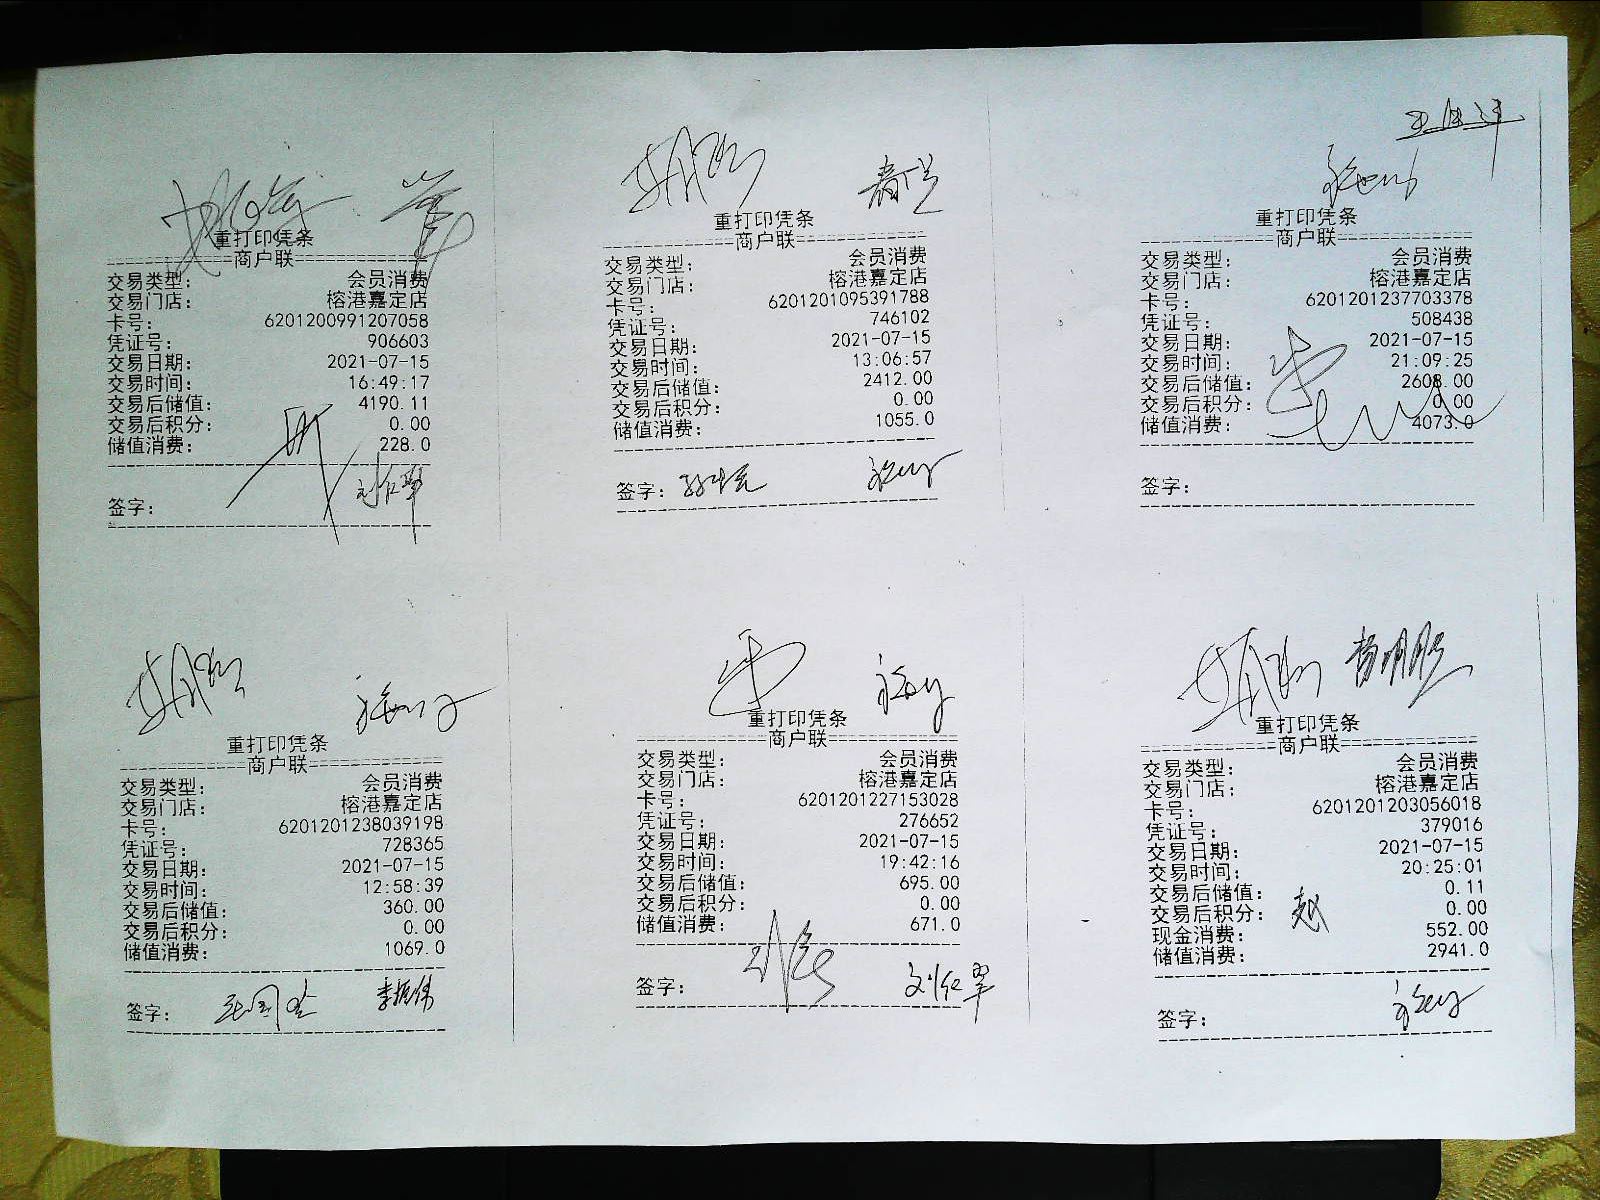 重打印凭条
商户联
交易类型: 会员消费
交易门店: 榕港嘉定店
卡号: 6201200991207058
凭证号: 906603
交易日期: 2021-07-15
交易时间: 16:49:17
交易后储值: 4190.11
交易后积分: 0.00
储值消费: 228.0
刘红翠
签字:
重打印凭条
商户联
交易类型: 会员消费
交易门店: 榕港嘉定店
卡号: 6201201095391788
凭证号: 746102
交易日期: 2021-07-15
交易时间: 13:06:57
交易后储值: 2412.00
交易后积分: 0.00
储值消费: 1055.0
签字:
重打印凭条
商户联
交易类型: 会员消费
交易门店: 榕港嘉定店
卡号: 6201201237703378
凭证号: 508438
交易日期: 2021-07-15
交易时间: 21:09:25
交易后储值: 2608.00
交易后积分: 0.00
储值消费: 4073.0
签字:
重打印凭条
商户联
交易类型: 会员消费
交易门店: 榕港嘉定店
卡号: 6201201238039198
凭证号: 728365
交易日期: 2021-07-15
交易时间: 12:58:39
交易后储值: 360.00
交易后积分: 0.00
储值消费: 1069.0
签字: 李振伟
重打印凭条
商户联
交易类型: 会员消费
交易门店: 榕港嘉定店
卡号: 6201201227153028
凭证号: 276652
交易日期: 2021-07-15
交易时间: 19:42:16
交易后储值: 695.00
交易后积分: 0.00
储值消费: 671.0
签字: 刘红翠
重打印凭条
商户联
交易类型: 会员消费
交易门店: 榕港嘉定店
卡号: 6201201203056018
凭证号: 379016
交易日期: 2021-07-15
交易时间: 20:25:01
交易后储值: 0.11
交易后积分: 0.00
现金消费: 552.00
储值消费: 2941.0
签字: